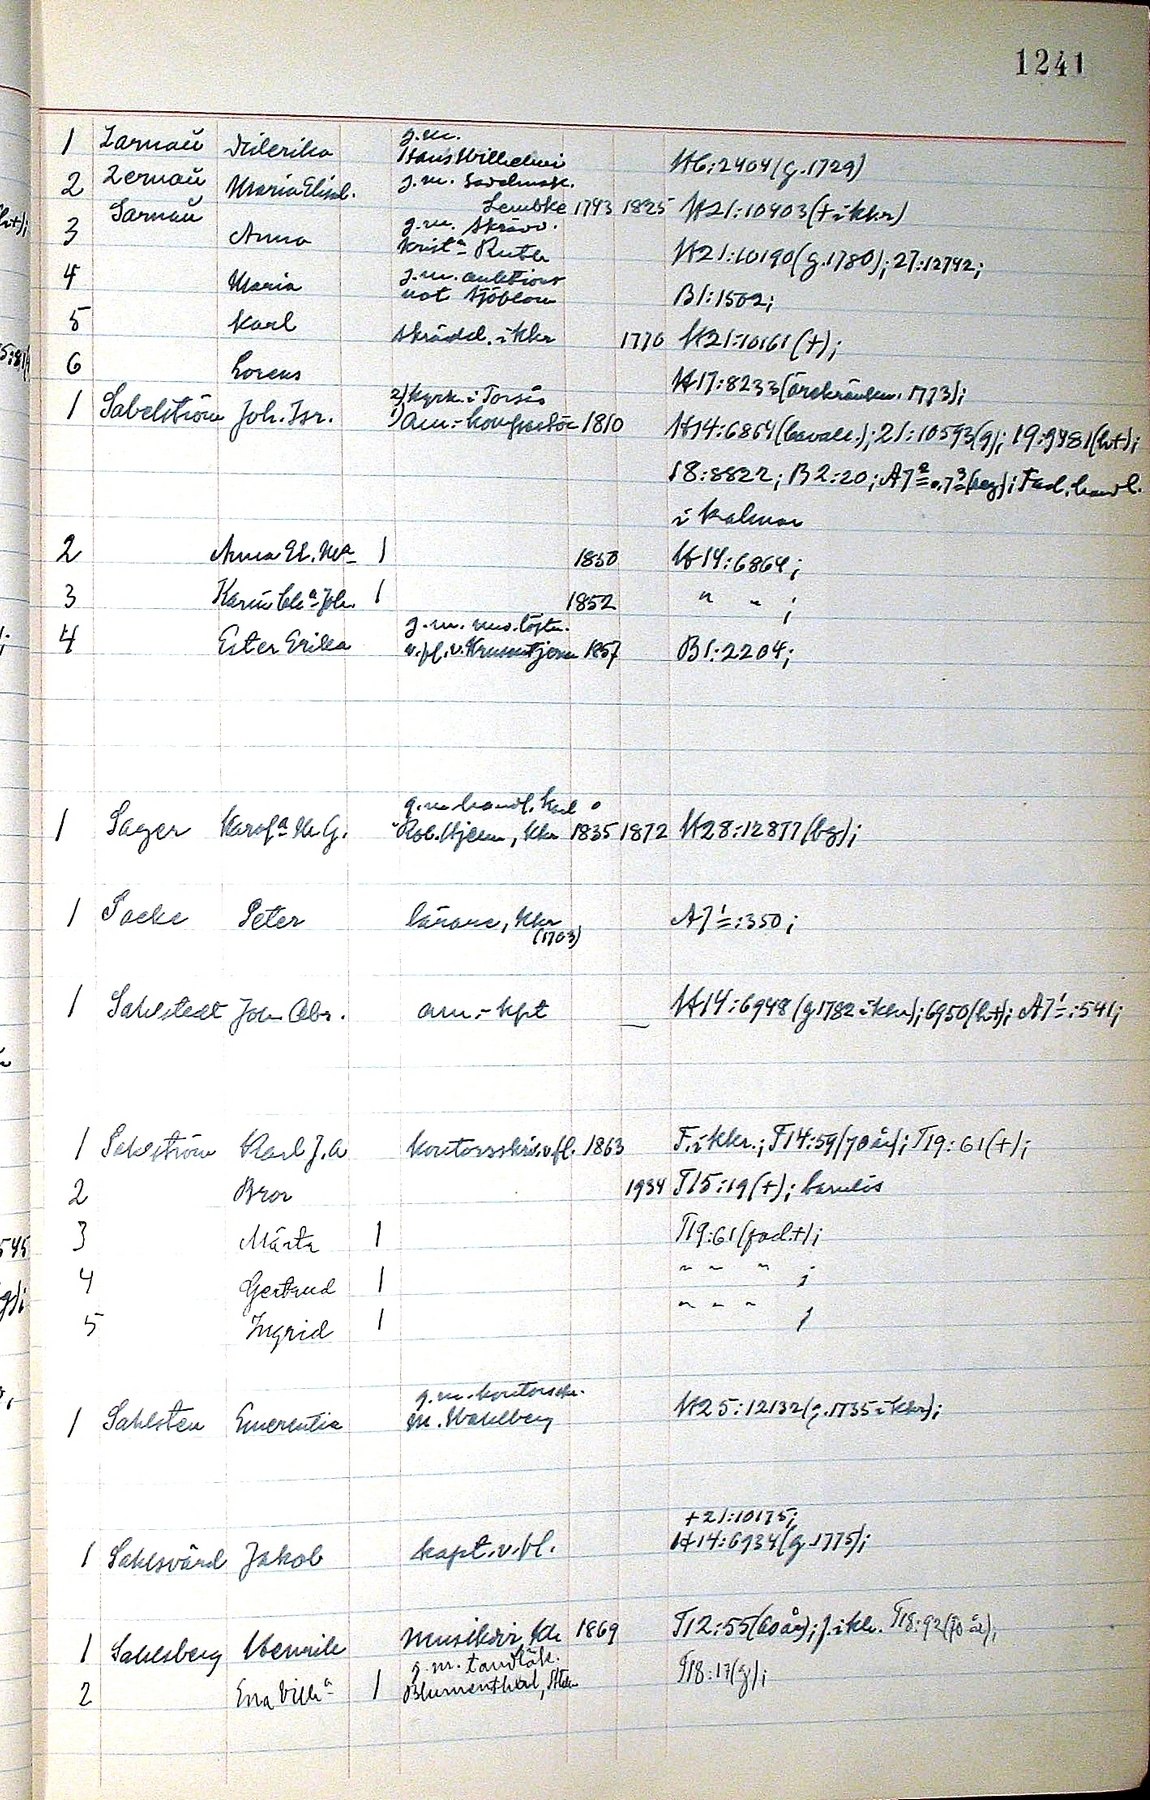 1241
1 Zarnaŭ Diderika g.m. Hans Wilhelmi H6:2404 (g.1729)
2 Zernaŭ Maria Elisab. g.m. sadelmak. Lembke 1743 1825 H21:10403 (+ i klr)
3 Sarnaŭ Anna g.m. skrädd. Krist:a Ruth H21:10190 (g.1780); 27:12742;
4 Maria g.m. auktions not Sjöblom B1:1502;
5 Karl skrädd. i klr 1770 H21:10161 (+);
6 Lorens H17:8233 (örekränkn. 1773);
1 Sabelström Joh. Isr. 2) kyrk. i Torsås 1) am:- 1810 H14:6864 (levall.); 21:10593 (g); 19:9481 (h+);
18:8822; B2:20; A7 2 o. 7 3 (beg); Fad. handl.
i Kalmar
2 Anna El. M:a 1 1850 H14:6864;
3 Karin 1 1852 " " ;
4 Ester Erika g.m. und.löjtn. v.fl. v. Krusenstjerna 1857 B1:2204;
1 Sager Karol:a M. G. g.m. handl. Karl Rob. Hjelm, Klr 1835 1872 H28:12877 (bg);
1 Sacke Peter lärare, Klr (1703) A7 1:350;
1 Sahlstedt Joh. Abr. am:- kpt — H14:6948 (g.1782 i klr); 6950 (h+); A7 1:541;
1 Sahlström Karl J. A kontorsskriv. v. fl. 1863 F. i klr.; T14:59 (70 år); T19:61 (+);
2 Bror 1934 T15:19 (+); barnlös
3 Märta 1 T19:61 (fad.+);
4 Gertrud 1 " " " ;
5 Ingrid 1 " " " ;
1 Sahlsten Emerentia g.m. kontorsskr. M. Wahlberg H25:12132 (g.1735 i klr);
+21:10175;
1 Sahlsvärd Jakob kapt. v. fl. H14:6934 (g.1775);
1 Sahlsberg Henrik musikdir, Klr 1869 T12:55 (60 år); f. i klr. T18:92 (70 år);
2 Ena Vilh:a 1 g.m. tandläk. Blumenthal, Sthlm T18:17 (g);